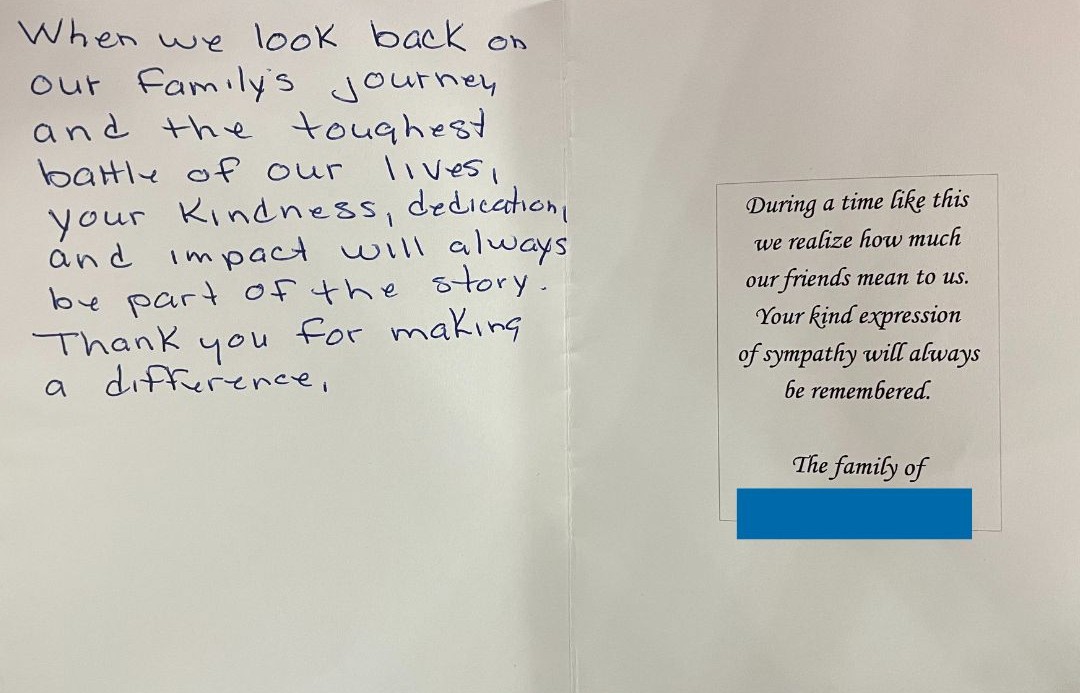 When we look back on
our family's journey
and the toughest
battle of our lives,
your kindness, dedication,
and impact will always
be part of the story.
Thank you for making
a difference.
During a time like this
we realize how much
our friends mean to us.
Your kind expression
of sympathy will always
be remembered.
The family of